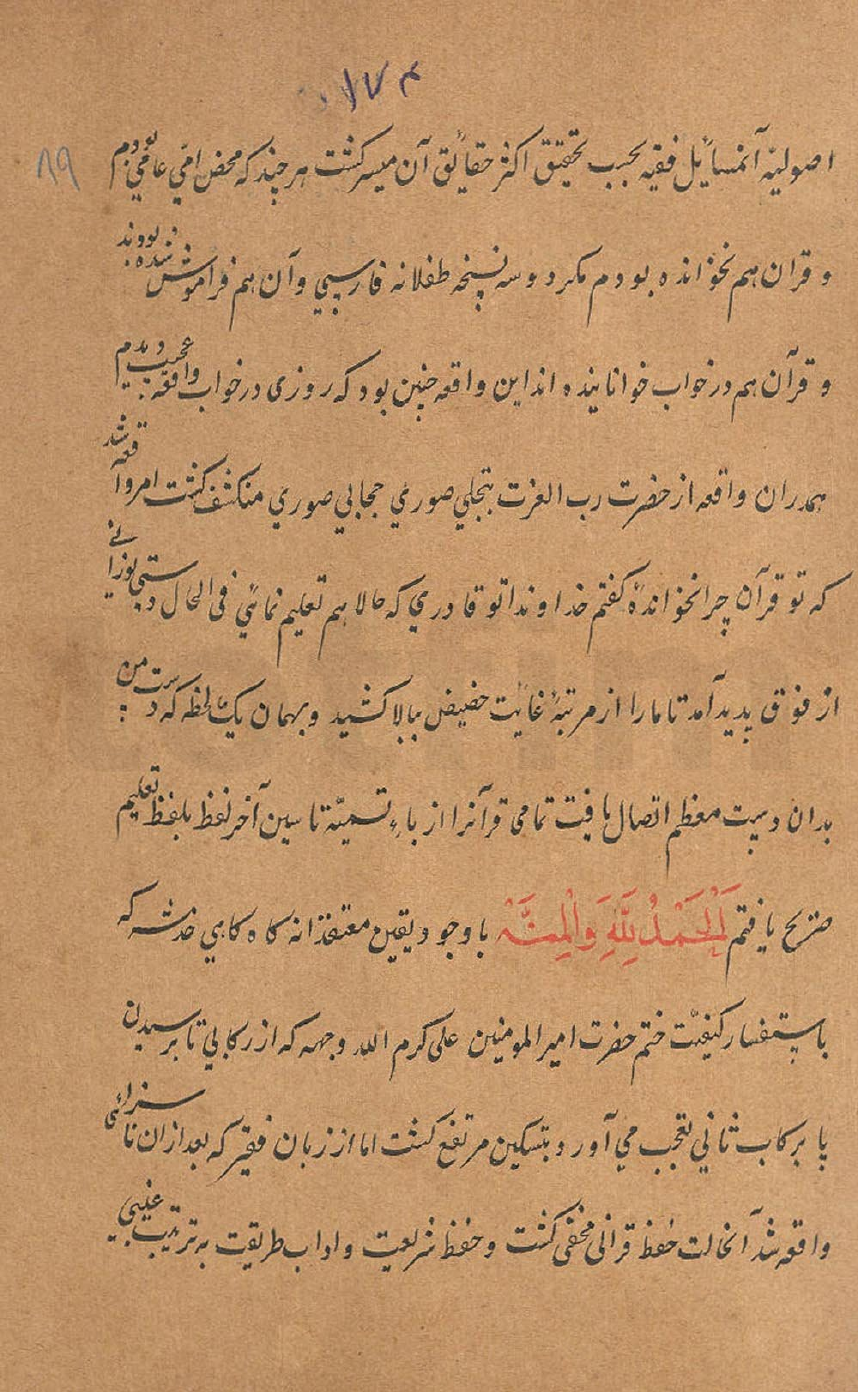 ۱۷۴
۸۹
اصولیه آنمسایل فقیه بحسب تحقیق اکثر حقایق آن میسر کشت هر چند که محض امّی عامی بودم
و قران هم نخوانده بودم مکر دو سه نسخه طفلانه فارسی و آن هم فراموش شده بودند
و قرآن هم در خواب خوانانیده اند این واقعه چنین بود که روزی در خواب واقعه عجیب دیدم
همدران واقعه از حضرت رب العزت بتجلی صوری حجابی صوری منکشف کشت امر واقعه شد
که تو قرآن چرا نخواندهٔ کفتم خداوندا تو قادری که حالا هم تعلیم نمائی فی الحال دستی نورانی
از فوق پدید آمد تا مارا از مرتبهٔ غایت حضیض ببالا کشید و بهمان یک لحظه که دست من
بدان دست معظم اتصال یافت تمامی قرآنرا از باء تسمیّه تا سین آخر لفظ بلفظ تعلیم
صریح یافتم اَلْحَمْدُ لِلّٰهِ وَالْمِنَّه باوجود یقین معتقدانه کاه کاهی خدشه که
باستفسار کیفیت ختم حضرت امیر المومنین علی کرم الله وجهه که از رکابی تا بر سیدن
پا برکاب ثانی تعجب می آورد بتسکین مرتفع کشت اما از زبان فقیر که بعد ازان ناسزائی
واقعه شد آنحالت حفظ قرانی مخفی کشت و حفظ شریعت و اداب طریقت به ترتیب غیبی